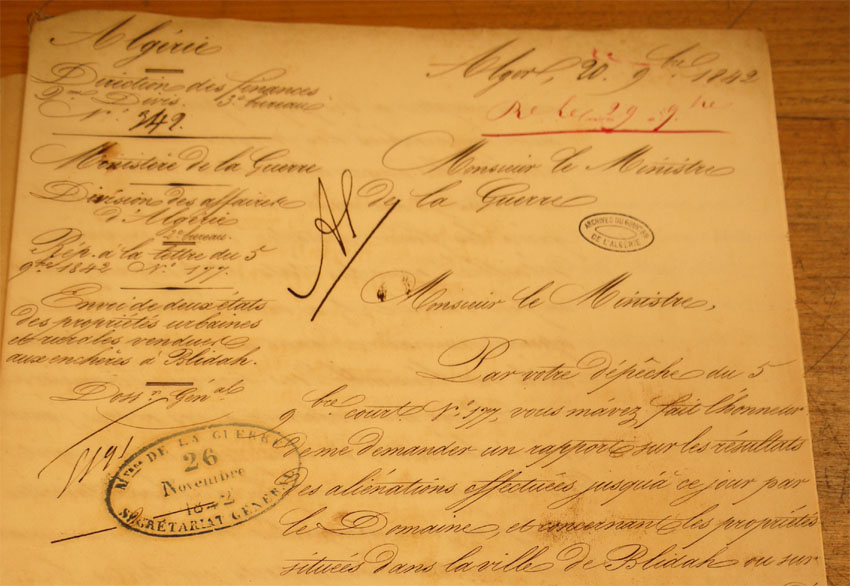 Algérie
Direction des finances
2me Divis. 3e bureau
N° 349.
Ministère de la Guerre
Division des affaires
d'Algérie
2e bureau.
Rép. à la lettre du 5
9bre 1842 N° 177.
Envoi de deux états
des propriétés urbaines
et rurales vendues
aux enchères à Blidah.
Doss. Génal
Mtère DE LA GUERRE
26
Novembre
1842
SECRÉTARIAT GÉNÉRAL
Alger, 20 9bre 1842
Re. le 29 9bre
Monsieur le Ministre
de la Guerre
ARCHIVES DU
DE L'ALGÉRIE
Monsieur le Ministre,
Par votre dépêche du 5
9bre court. N° 177, vous m'avez fait l'honneur
de me demander un rapport sur les résultats
des aliénations effectuées jusqu'à ce jour par
le Domaine, et concernant les propriétés
situées dans la ville de Blidah ou sur